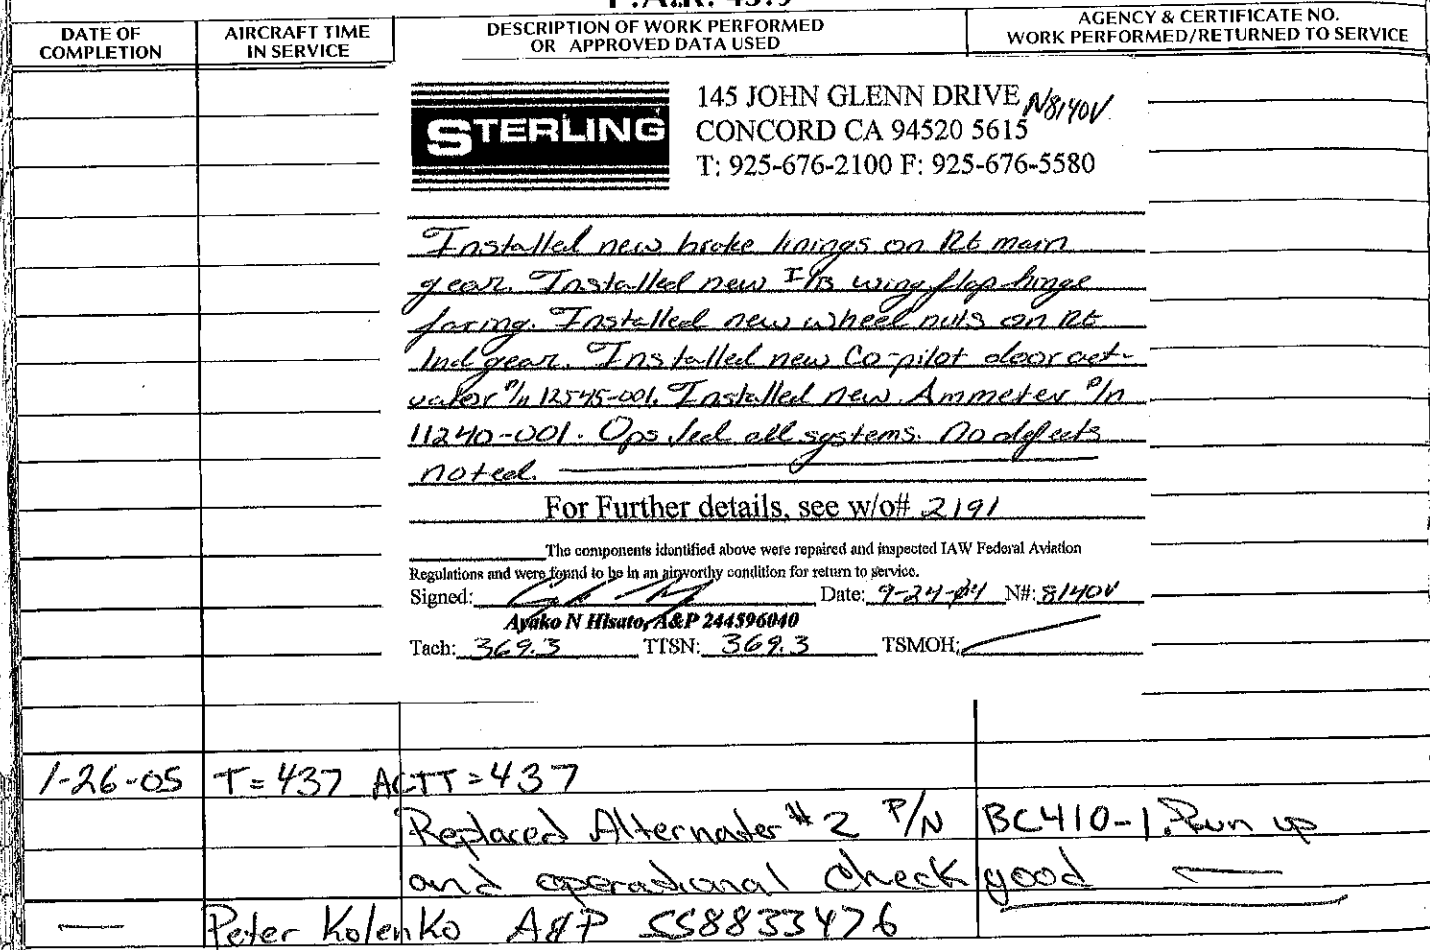 F.A.R. 43.9
DATE OF COMPLETION
AIRCRAFT TIME IN SERVICE
DESCRIPTION OF WORK PERFORMED OR APPROVED DATA USED
AGENCY & CERTIFICATE NO. WORK PERFORMED/RETURNED TO SERVICE
STERLING
145 JOHN GLENN DRIVE N8140V
CONCORD CA 94520 5615
T: 925-676-2100 F: 925-676-5580
Installed new brake linings on Rt main
gear. Installed new I/B wing flap hinge
faring. Installed new wheel nuts on Rt
lnd gear. Installed new Co-pilot door act-
uator P/n 12545-001. Installed new Ammeter P/n
11240-001. Ops all systems. No defects
noted.
For Further details, see w/o# 2191
The components identified above were repaired and inspected IAW Federal Aviation
Regulations and were found to be in an airworthy condition for return to service.
Signed: Date: 9-24-04 N#: 8140V
Ayako N Hisato, A&P 244596040
Tach: 369.3 TTSN: 369.3 TSMOH:
1-26-05 T=437 ACTT=437
Replaced Alternater # 2 P/N BC410-1. Run up
and operational check good
Peter Kolenko A&P SS8833476